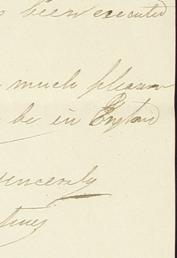 been executed
much pleasure
be in England
sincerely